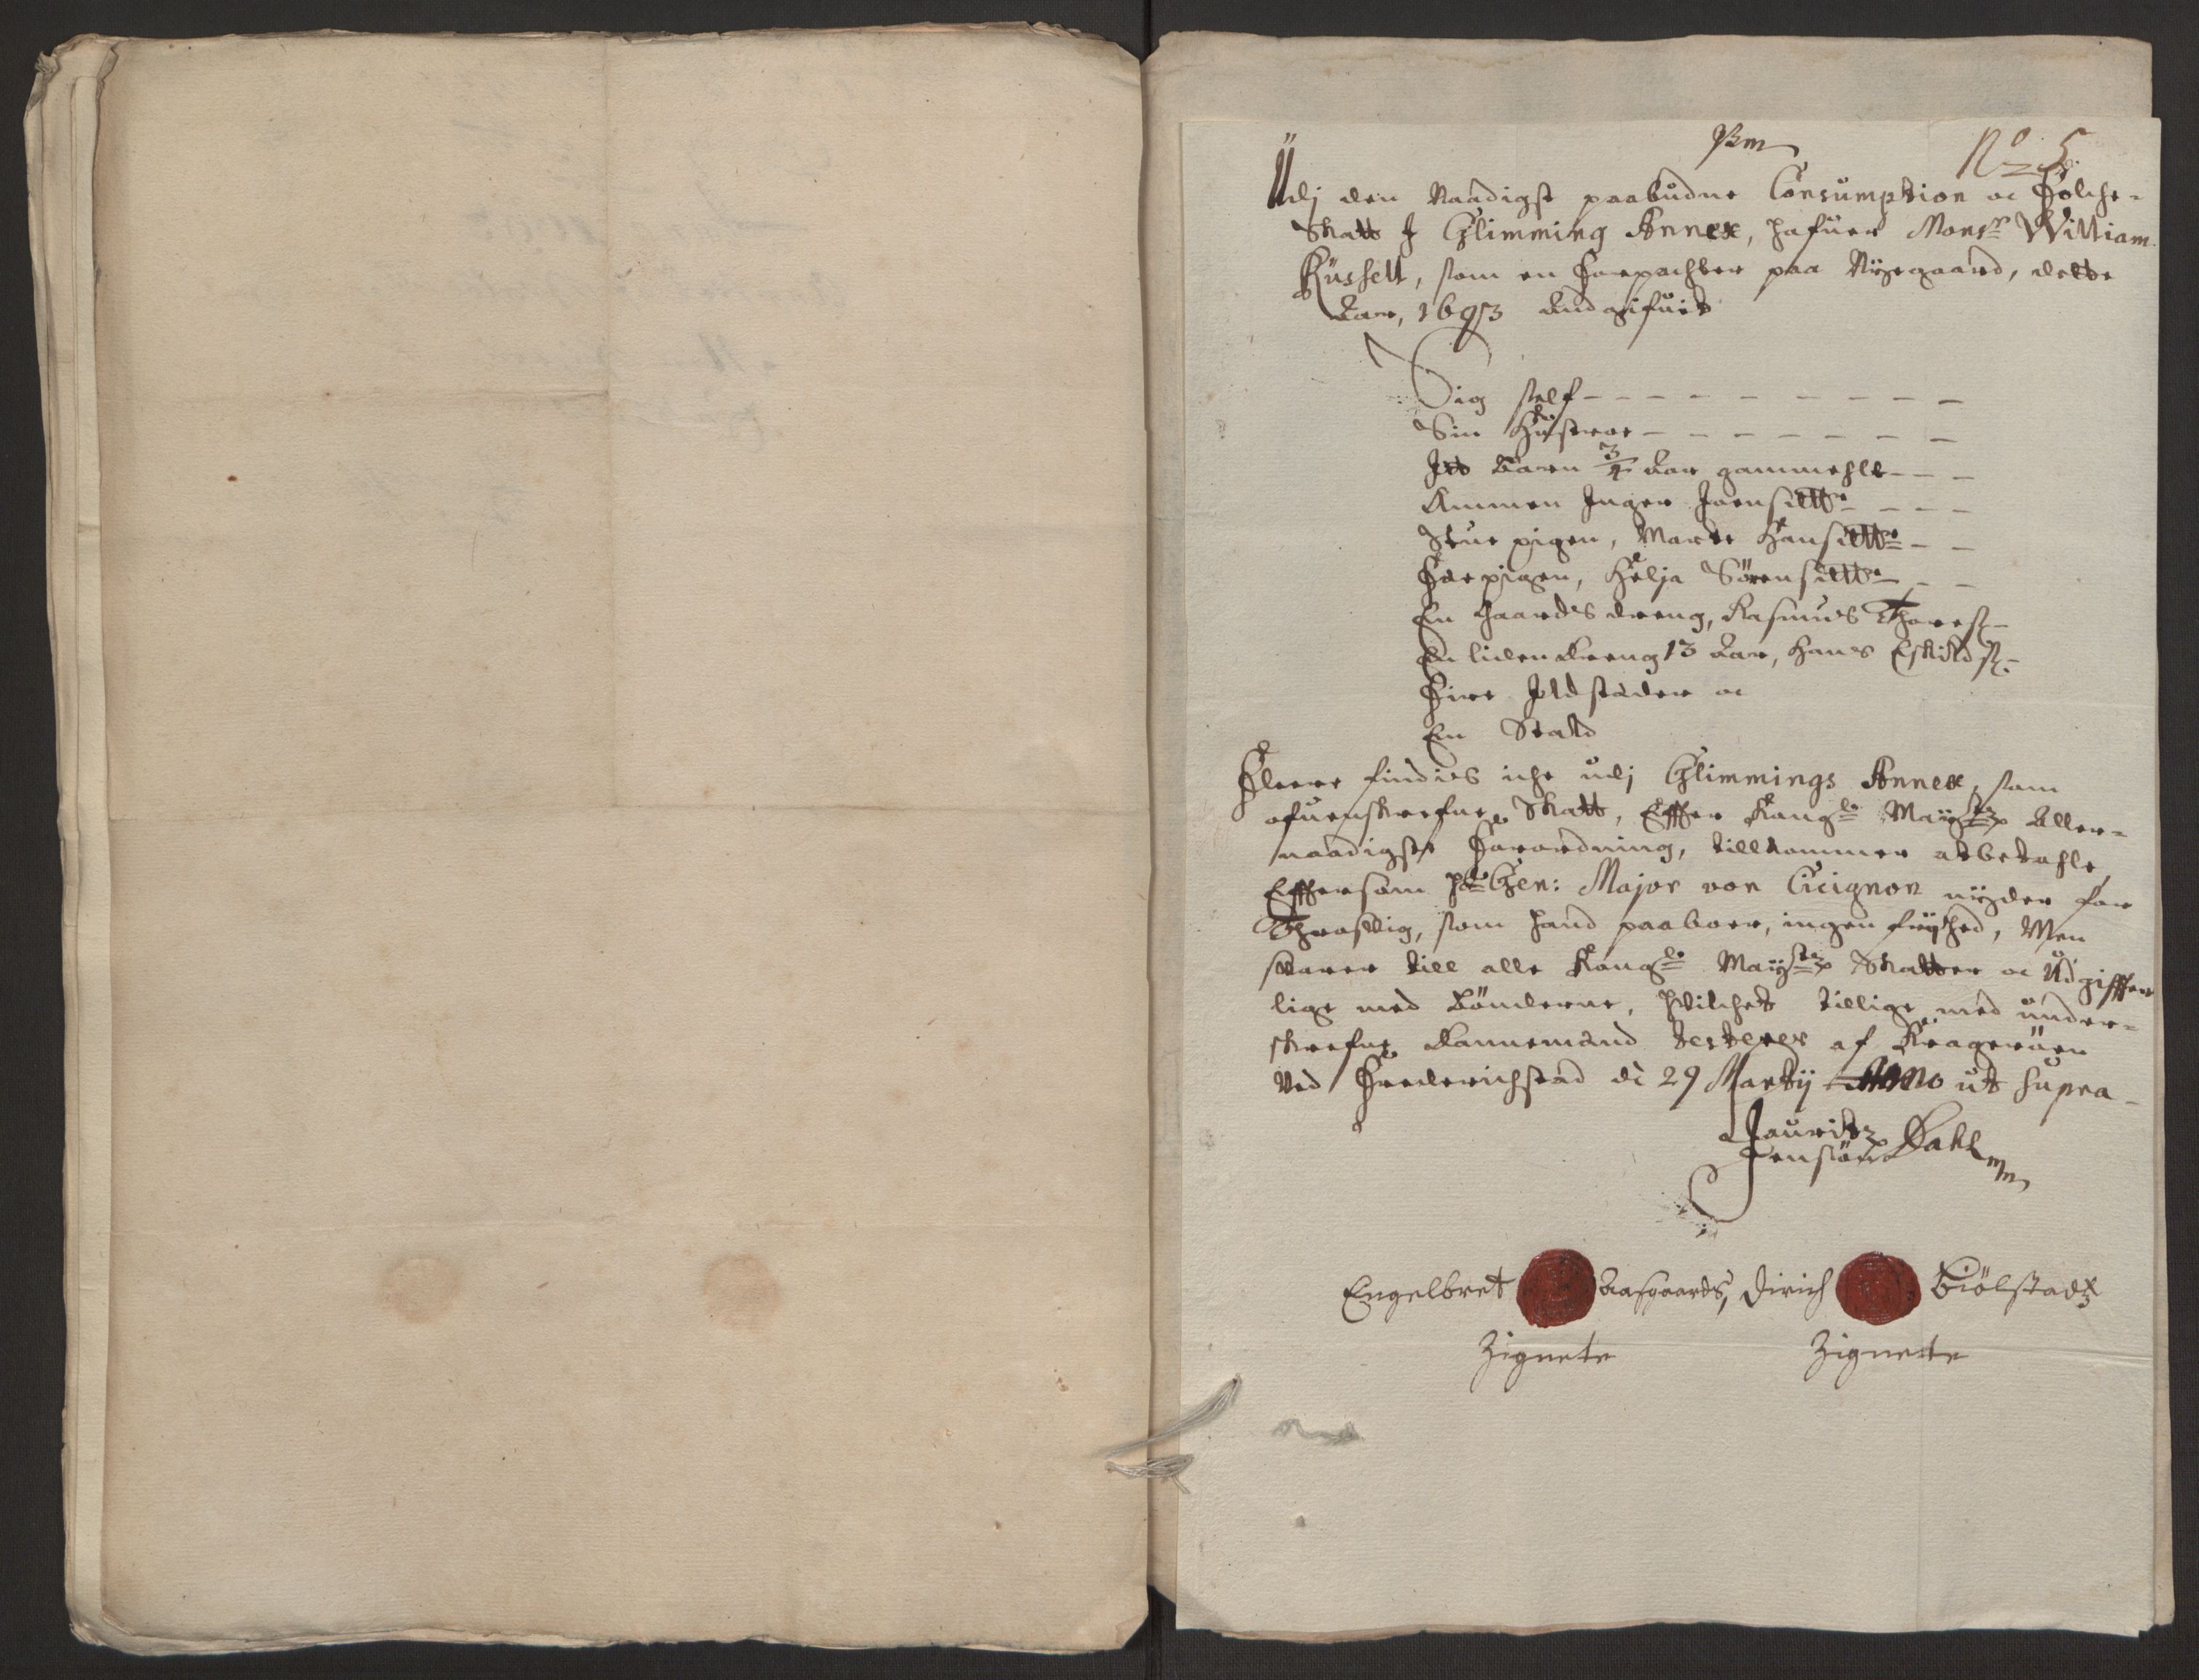 No 5
Udj den Naadigst paabudne Consumption oc Folche-
Skatt I Glimming Annex, hafuer Monsr William
Russell, som en Forpachter paa Nyegaard, dette
Aar, 1693 Andgifuit
Sig self
Sin Hustroe
Itt Barn 3/4 Aar gammehlt
Ammen Inger Joensdtte
Stue pigen, Marte Hansdtte
Fæe pigen, Helje Sörensdtte
En Gaards dreng, Rasmus Thoresß
En liden dreng 13 Aar, Hans Eskildsß
Fire Ildstæder oc
En Stald
Fleere findis iche udj Glimmings Annex, som
ofuenskrefne Skatt, Effter Kongle Maystz Aller-
naadigste Forordning, tillkommer at betahle,
Effter som hr Gen: Major von Cicignon nyder for
Throslig, som hand paaboer, ingen frijhed, Men
suarer till alle Kongle Maystz Skatter oc Udgiffter
lige med Bönderne, hvilchet tillige med under-
skrefne Dannemænd testerer af Kragerøen
Ved Frederichstad dē 29 Martij Anno ut supra
Lauritz
Jensiøn Dahl
Engelbret Aasgaards, Dirich Biölstadz
Zignete Zignette